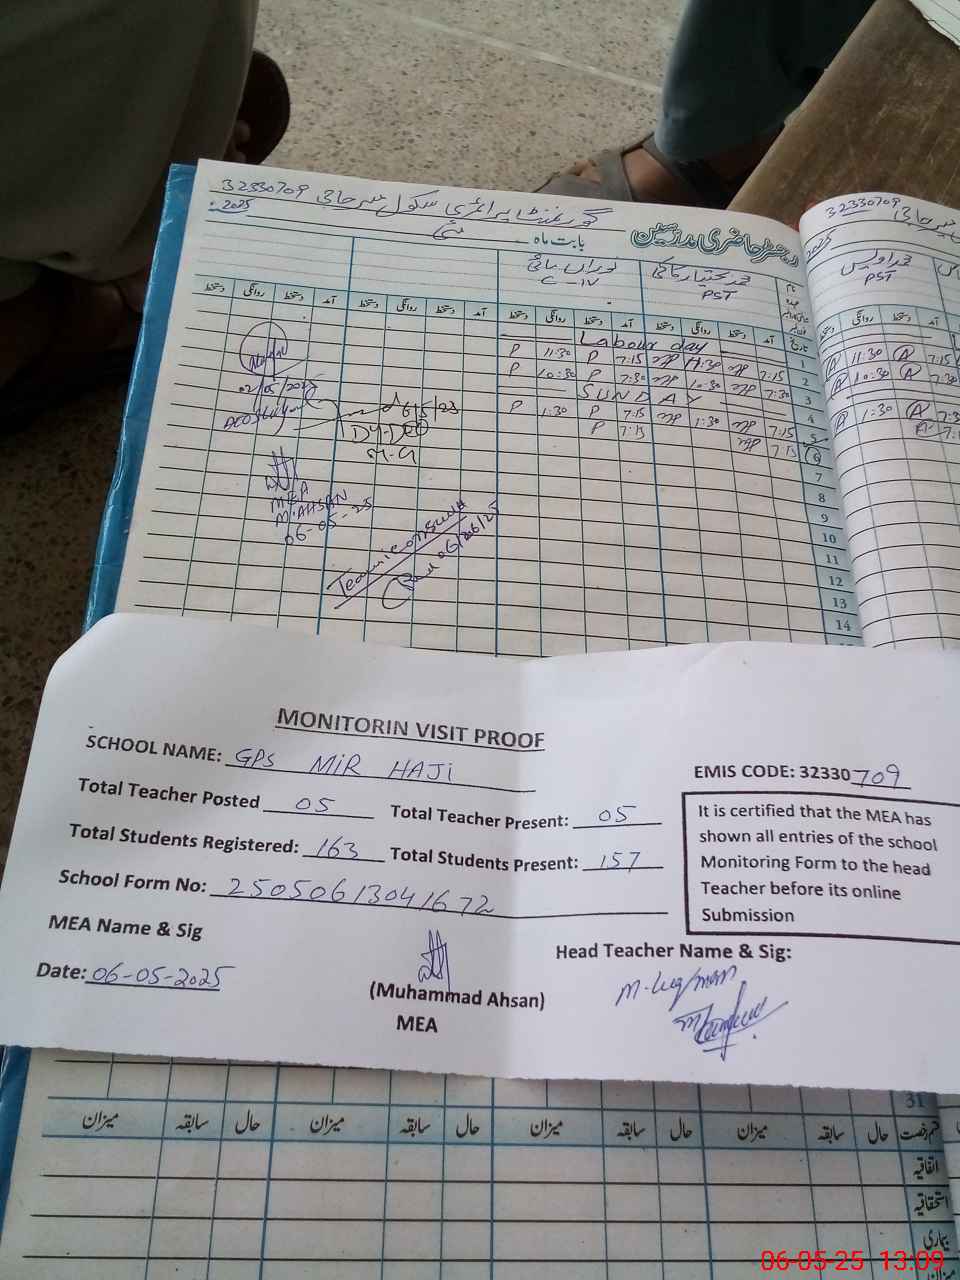 گورنمنٹ پرائمری سکول میر حاجی 32330709
رجسٹر حاضری مدرسین
بابت ماہ مئی 2025
محمد بختیار
PST
نوراں مائی
نام
عہدہ
تاریخ
آمد دستخط روانگی دستخط آمد دستخط روانگی دستخط آمد دستخط روانگی دستخط
1 Labour day
2 7:15 11:30 7:15 P 11:30 P
3 7:30 10:30 7:30 P 10:30 P
4 SUNDAY
5 7:15 1:30 7:15 P 1:30 P
6 7:15 7:15 P
7
8
9
10
11
12
13
14
02/05/2025
6/5/25
DY-DEO
M.G
MEA
M.AHSAN
06-05-25
32330709
2025
محمد اویس
PST
روانگی دستخط
A 11:30 A 7:15
A 10:30 A 7:30
A 1:30 A
MONITORIN VISIT PROOF
SCHOOL NAME: GPS MIR HAJI
EMIS CODE: 32330709
Total Teacher Posted 05 Total Teacher Present: 05
Total Students Registered: 163 Total Students Present: 157
School Form No: 25050613041672
It is certified that the MEA has
shown all entries of the school
Monitoring Form to the head
Teacher before its online
Submission
MEA Name & Sig
Head Teacher Name & Sig:
Date: 06-05-2025
(Muhammad Ahsan)
MEA
M. Luqman
31
قسم رخصت حال سابقہ میزان حال سابقہ میزان حال سابقہ میزان حال سابقہ میزان
اتفاقیہ
استحقاقیہ
بیماری
میزان
06-05-25 13:09